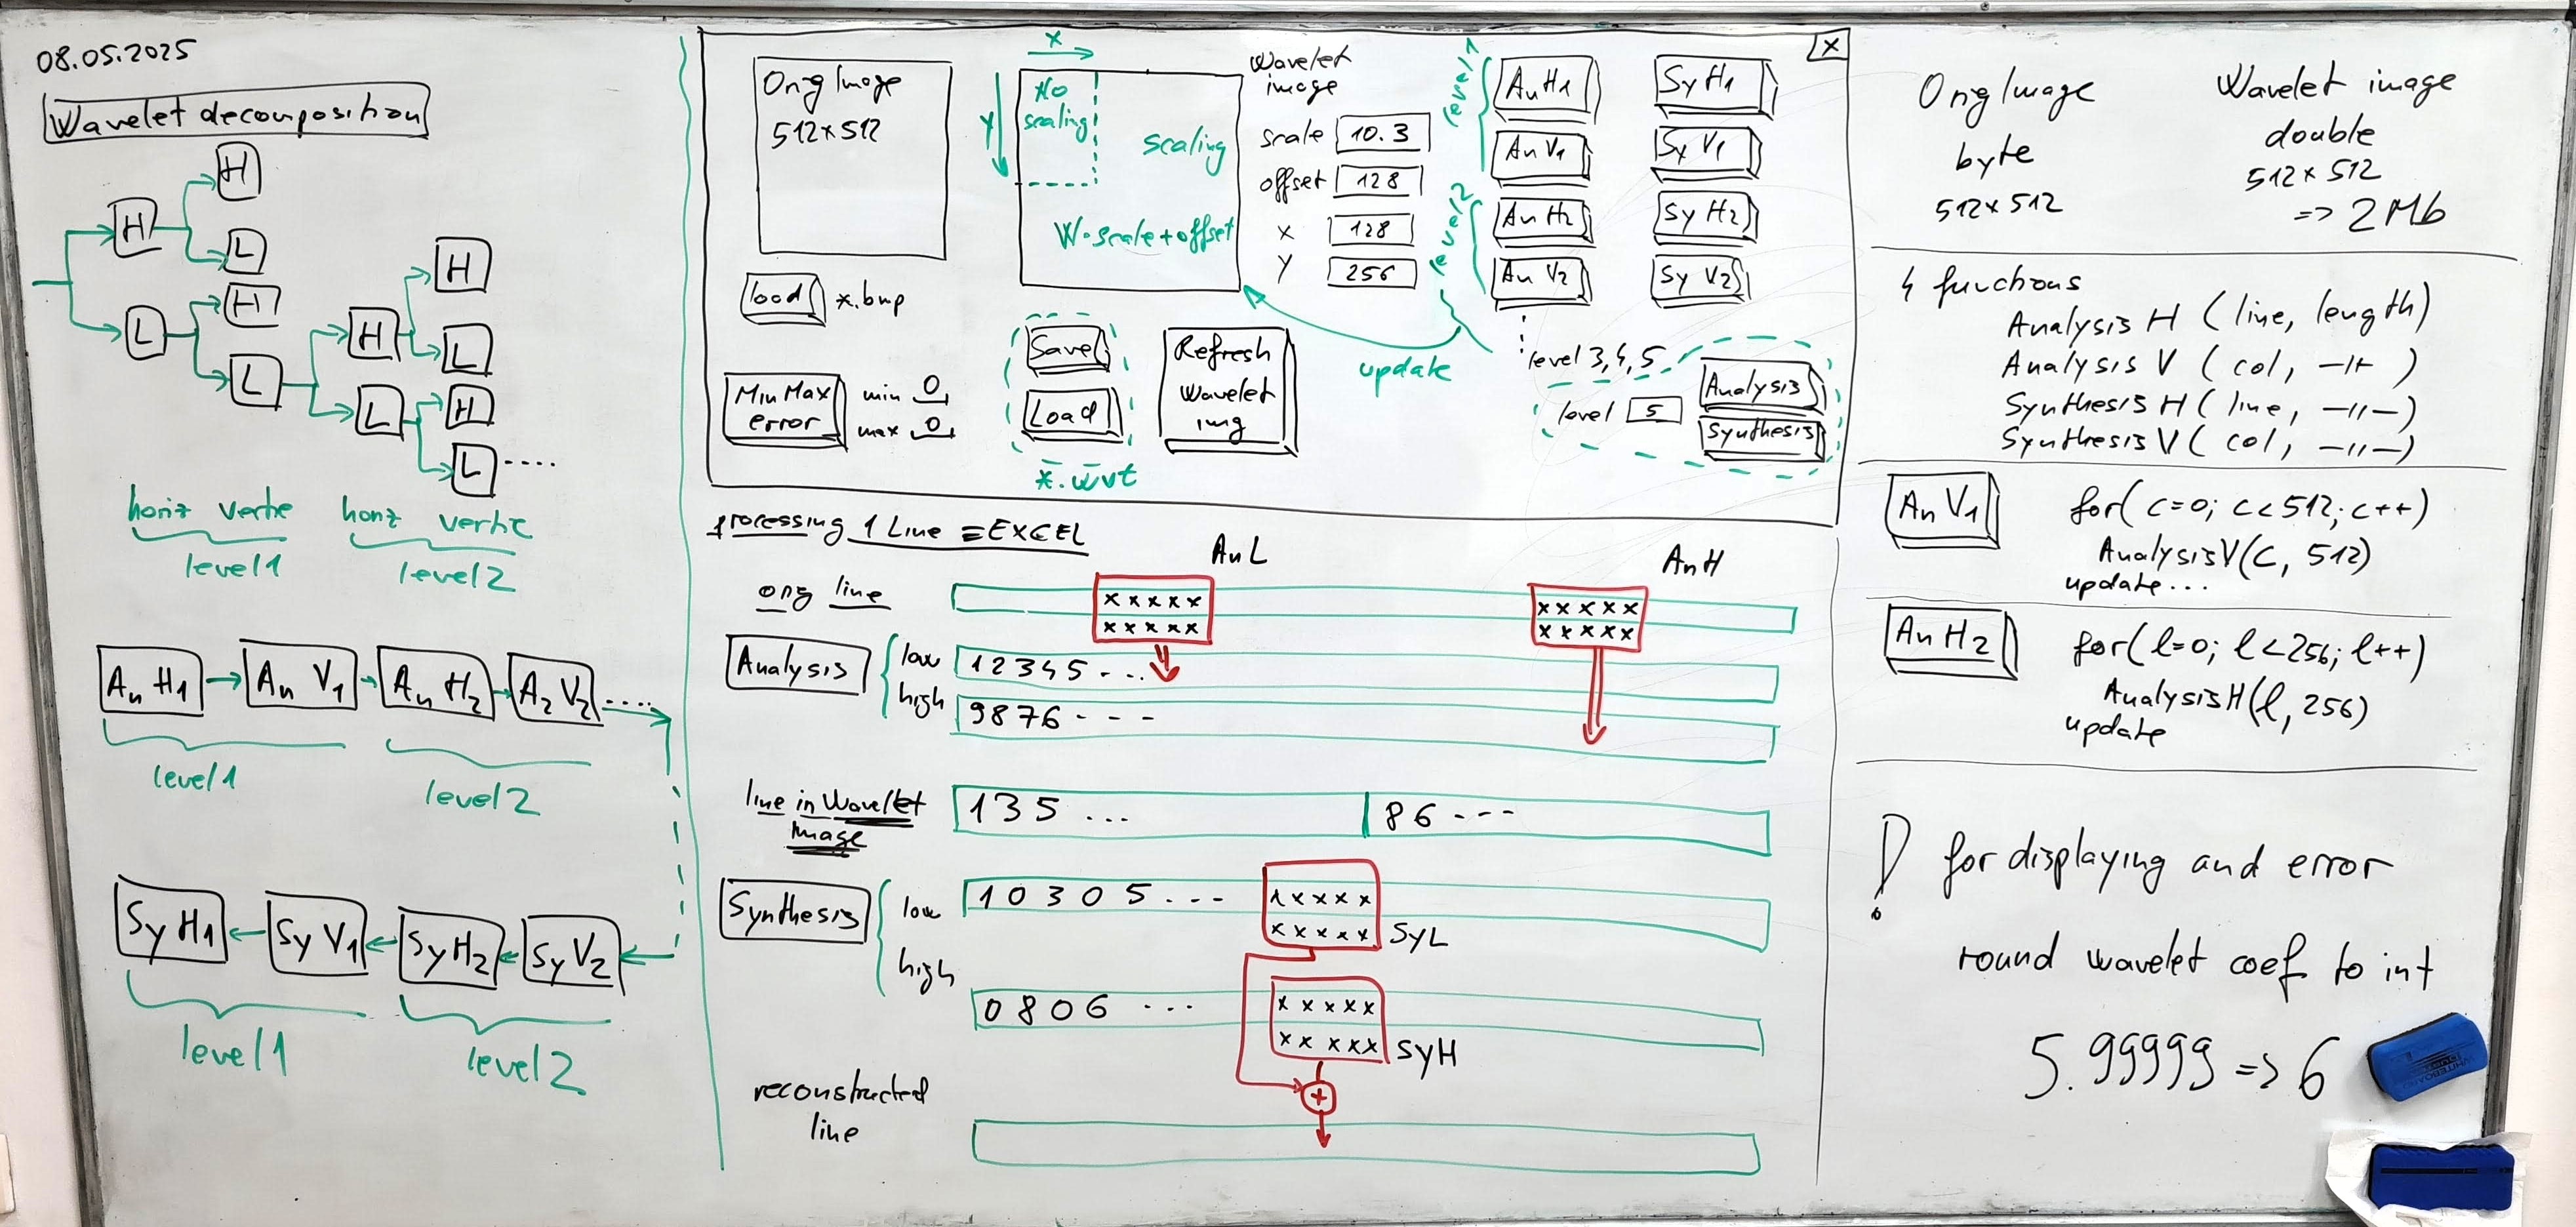 08.05.2025
Wavelet decomposition
H
H
L
L
H
L
H
H
L
L
H
L ....
horiz vertic
level 1
horiz vertic
level 2
An H1
An V1
An H2
A2 V2
....
level 1
level 2
Sy H1
Sy V1
Sy H2
Sy V2
level 1
level 2
Orig Image
512x512
load
*.bmp
Min Max
error
min 0
max 0
x
y
No
scaling
scaling
W.scale+offset
Save
Load
*.wvt
Refresh
Wavelet
img
Wavelet
image
scale 10.3
offset 128
x 128
y 256
update
level 1
level 2
An H1
Sy H1
An V1
Sy V1
An H2
Sy H2
An V2
Sy V2
level 3,4,5
level 5
Analysis
Synthesis
X
Processing 1 Line = EXCEL
AnL
AnH
orig line
x x x x x
x x x x x
x x x x x
x x x x x
Analysis
low
1 2 3 4 5 - ..
high
9 8 7 6 - - -
line in Wavelet
Image
1 3 5 ...
8 6 - - -
Synthesis
low
1 0 3 0 5 . - -
x x x x x
x x x x x
SyL
high
0 8 0 6 ...
x x x x x
x x x x x
SyH
+
reconstructed
line
Orig Image
byte
512x512
Wavelet image
double
512x512
=> 2Mb
4 functions
Analysis H (line, length)
Analysis V (col, -11- )
Synthesis H (line, -11-)
Synthesis V (col, -11-)
An V1
for(c=0; c<512; c++)
AnalysisV(c, 512)
update...
An H2
for(l=0; l<256; l++)
AnalysisH(l, 256)
update
! for displaying and error
round wavelet coef to int
5.99999 => 6